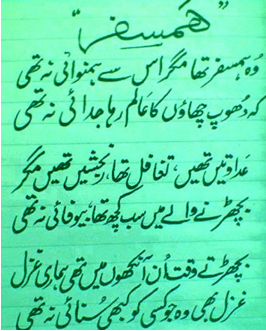 "ہمسفر"
وہ ہمسفر تھا مگر اس سے ہمنوائی نہ تھی
کہ دھوپ چھاؤں کا عالم رہا جدائی نہ تھی
عداوتیں تھیں، تغافل تھا، رنجشیں تھیں مگر
بچھڑنے والے میں سب کچھ تھا، بیوفائی نہ تھی
بچھڑتے وقت اُن آنکھوں میں تھی ہماری غزل
غزل بھی وہ جو کسی کو کبھی سُنائی نہ تھی